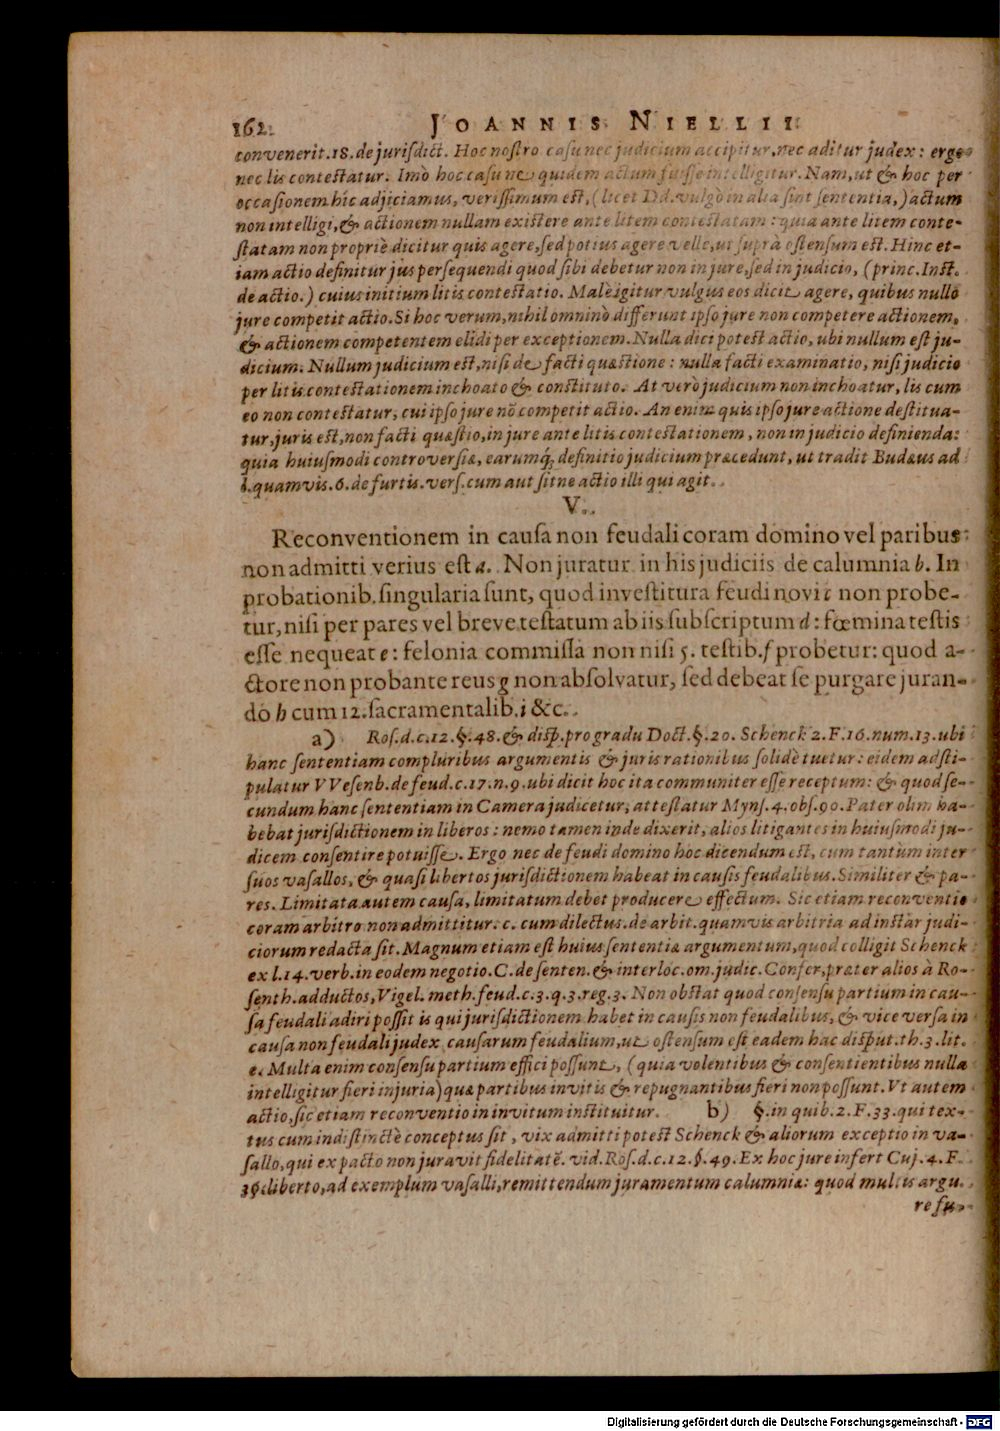 162. JOANNIS NIELLII
convenerit.18. de jurisdict. Hoc nostro casu nec judicium accipitur, nec aditur judex: ergo
nec lis contestatur. Imò hoc casu ne quidem actum fuisse intelligitur. Nam, ut & hoc per
occasionem hîc adjiciamus, verissimum est, (licet Dd. vulgò in alia sint sententia,) actum
non intelligi, & actionem nullam existere ante litem contestatam: quia ante litem conte-
statam non propriè dicitur quis agere, sed potius agere velle, ut suprà ostensum est. Hinc et-
iam actio definitur jus persequendi quod sibi debetur non in jure, sed in judicio, (princ. Inst.
de actio.) cuius initium litis contestatio. Malè igitur vulgus eos dicit agere, quibus nullo
jure competit actio. Si hoc verum, nihil omninò differunt ipso jure non competere actionem,
& actionem competentem elidi per exceptionem. Nulla dici potest actio, ubi nullum est ju-
dicium. Nullum judicium est, nisi de facti quæstione: nulla facti examinatio, nisi judicio
per litis contestationem inchoato & constituto. At verò judicium non inchoatur, lis cum
eo non contestatur, cui ipso jure nō competit actio. An enim quis ipso jure actione destitua-
tur, juris est, non facti quæstio, in jure ante litis contestationem, non in judicio definienda:
quia huiusmodi controversiæ, earumq́; definitio judicium præcedunt, ut tradit Budæus ad
l. quamvis. 6. de furtis. vers. cum aut sit ne actio illi qui agit.
V.
Reconventionem in causa non feudali coram domino vel paribus
non admitti verius est a. Non juratur in his judiciis de calumnia b. In
probationib. singularia sunt, quod investitura feudi novi c non probe-
tur, nisi per pares vel breve testatum ab iis subscriptum d: fœmina testis
esse nequeat e: felonia commissa non nisi 5. testib. f probetur: quod a-
ctore non probante reus g non absolvatur, sed debeat se purgare juran-
do h cum 12. sacramentalib. i &c.
a) Ros. d. c. 12. §. 48. & disp. pro gradu Doct. §. 20. Schenck 2. F. 16. num. 13. ubi
hanc sententiam compluribus argumentis & juris rationibus solidè tuetur: eidem adsti-
pulatur VVesenb. de feud. c. 17. n. 9. ubi dicit hoc ita communiter esse receptum: & quod se-
cundum hanc sententiam in Camera judicetur, attestatur Myns. 4. obs. 90. Pater olim ha-
bebat jurisdictionem in liberos: nemo tamen inde dixerit, alios litigantes in huiusmodi ju-
dicem consentire potuisse. Ergo nec de feudi domino hoc dicendum est, cum tantùm inter
suos vasallos, & quasi libertos jurisdictionem habeat in causis feudalibus. Similiter & pa-
res. Limitata autem causa, limitatum debet producere effectum. Sic etiam reconventio
coram arbitro non admittitur. c. cum dilectus. de arbit. quamvis arbitria ad instar judi-
ciorum redacta sit. Magnum etiam est huius sententiæ argumentum, quod colligit Schenck
ex l. 14. verb. in eodem negotio. C. de senten. & interloc. om. judic. Confer, præter alios à Ro-
senth. adductos, Vigel. meth. feud. c. 3. q. 3. reg. 3. Non obstat quod consensu partium in cau-
sa feudali adiri possit is qui jurisdictionem habet in causis non feudalibus, & vice versa in
causa non feudali judex causarum feudalium, ut ostensum est eadem hac disput. th. 3. lit.
e. Multa enim consensu partium effici possunt, (quia volentibus & consentientibus nulla
intelligitur fieri injuria) quæ partibus invitis & repugnantibus fieri non possunt. Vt autem
actio, sic etiam reconventio in invitum instituitur. b) §. in quib. 2. F. 33. qui tex-
tus cum indistinctè conceptus sit, vix admitti potest Schenck & aliorum exceptio in va-
sallo, qui ex pacto non juravit fidelitatē. vid. Ros. d. c. 12. §. 49. Ex hoc jure infert Cuj. 4. F.
36. liberto, ad exemplum vasalli, remittendum juramentum calumniæ: quod multis argu.
re su-
Digitalisierung gefördert durch die Deutsche Forschungsgemeinschaft - DFG